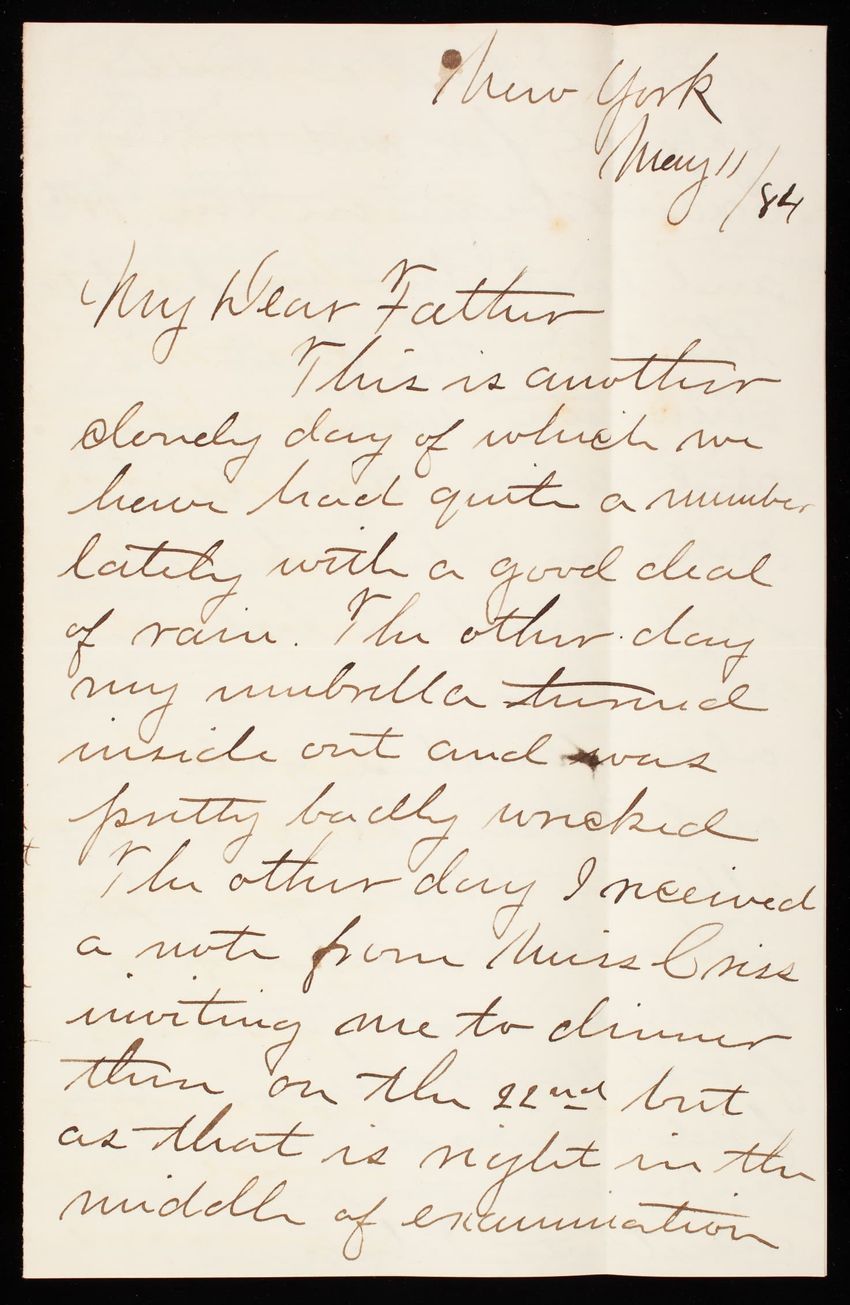 New York
May 11/84
My Dear Father
This is another
cloudy day of which we
have had quite a number
lately with a good deal
of rain. The other day
my umbrella turned
inside out and was
pretty badly wrecked
The other day I received
a note from Miss Criss
inviting me to dinner
there on the 22nd but
as that is right in the
middle of examination